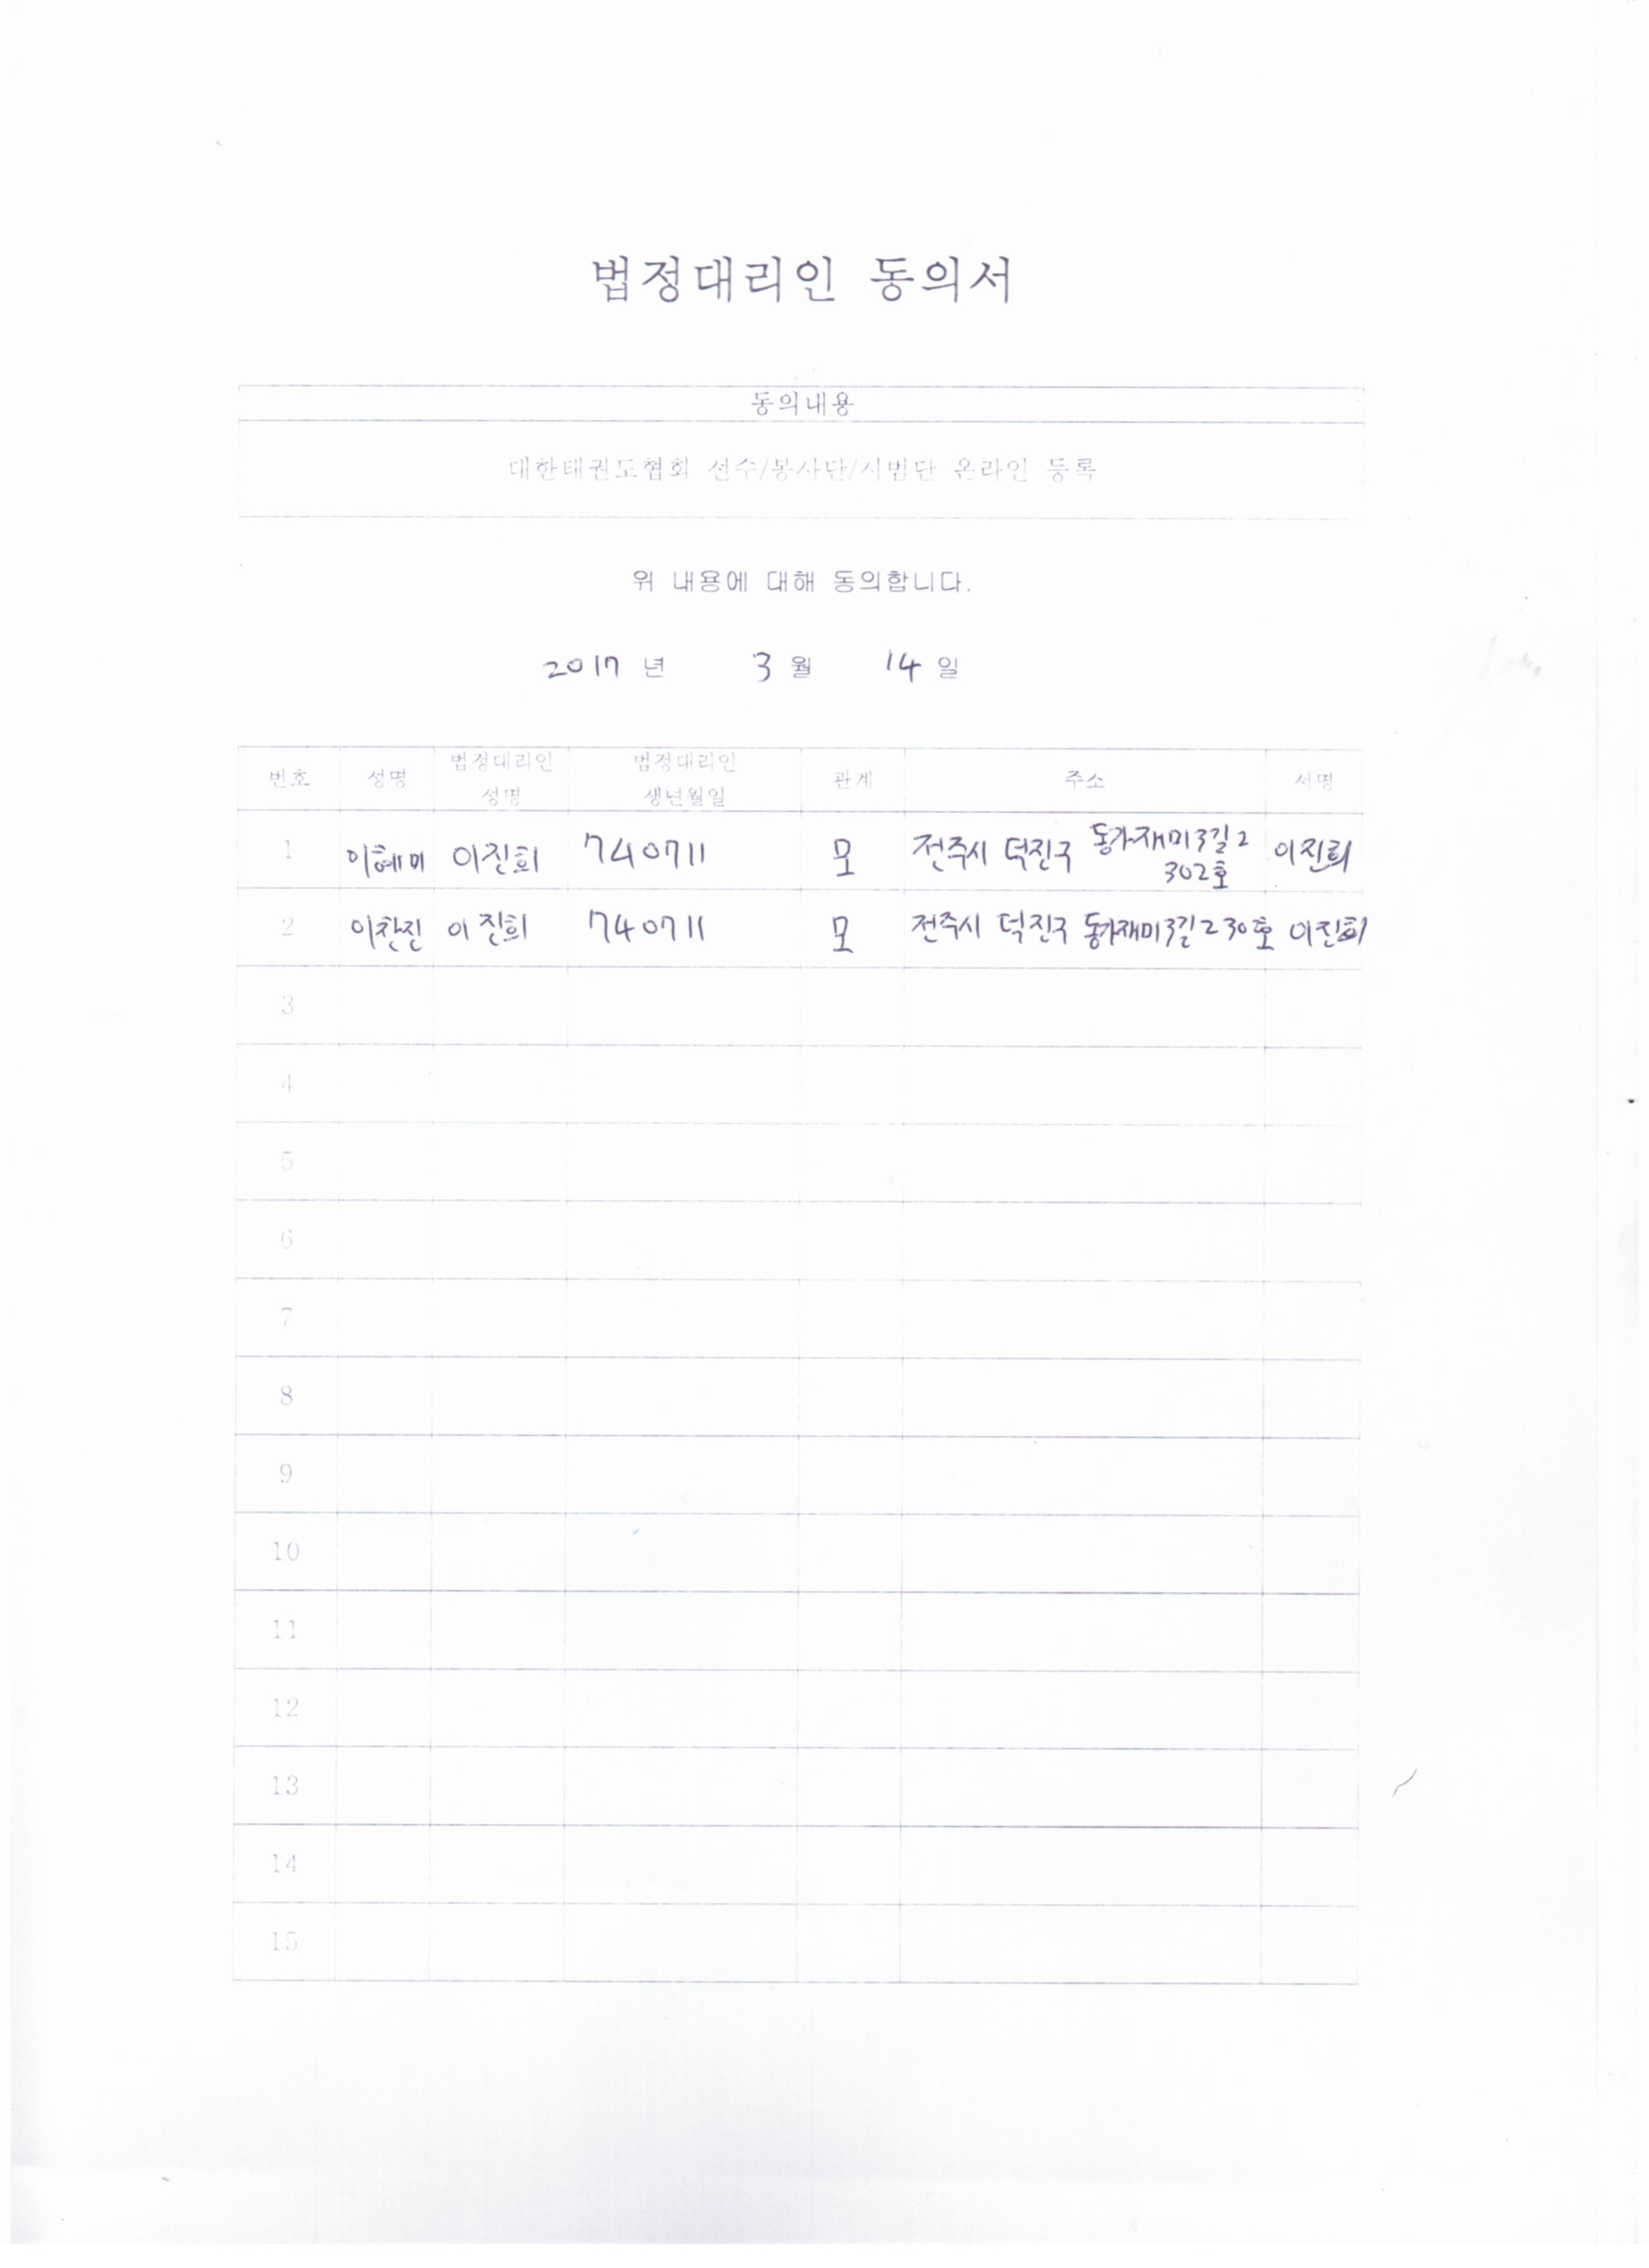 법정대리인 동의서
동의내용
대한태권도협회 선수/봉사단/시범단 온라인 등록
위 내용에 대해 동의합니다.
2017 년 3 월 14 일
번호 성명 법정대리인 성명 법정대리인 생년월일 관계 주소 서명
1 이혜미 이진희 740711 모 전주시 덕진구 동가재미3길2 302호 이진희
2 이찬진 이진희 740711 모 전주시 덕진구 동가재미3길2 30호 이진희
3
4
5
6
7
8
9
10
11
12
13
14
15